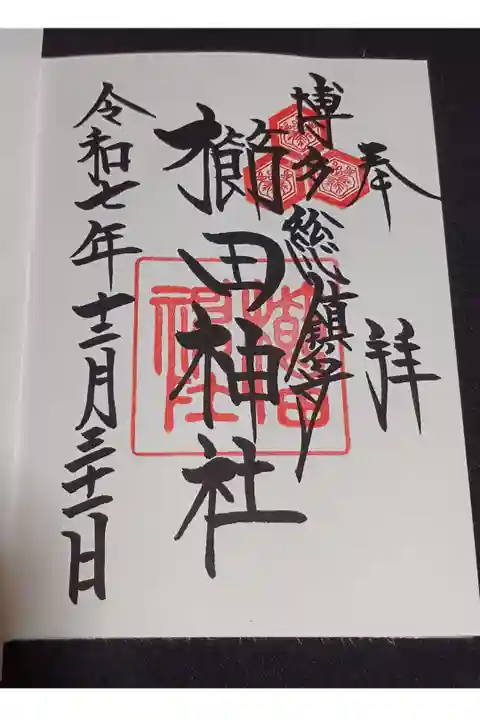 奉拝
博多総鎮守
櫛田神社
櫛田神社
令和七年十二月三十一日